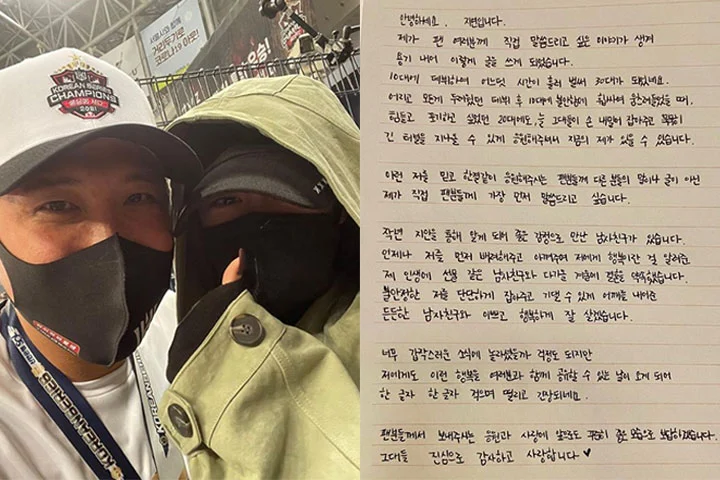 KOREAN SERIES
CHAMPIONS
2021
KOREAN SERIES
KOREAN SERIES
안녕하세요. 지연입니다.
제가 팬 여러분께 직접 말씀드리고 싶은 이야기가 생겨
용기 내어 이렇게 글을 쓰게 되었습니다.
10대에 데뷔하여 어느덧 시간이 흘러 벌써 30대가 되었네요.
어리고 모든게 두려웠던 데뷔 후 10대에 불안함이 휩싸여 움츠러들었을 때,
힘들고 포기하고 싶었던 20대에도, 늘 그대들이 손 내밀어 잡아주고 묵묵히
긴 터널을 지나올 수 있게 응원해주셔서 지금의 제가 있을 수 있습니다.
이런 저를 믿고 한결같이 응원해주시는 팬분들께 다른 분들의 말이나 글이 아닌
제가 직접 팬분들께 가장 먼저 말씀드리고 싶습니다.
작년 지인을 통해 알게 되어 좋은 감정으로 만난 남자친구가 있습니다.
언제나 저를 먼저 배려해주고 아껴주며 저에게 행복이란 걸 알려준
제 인생에 선물 같은 남자친구와 다가올 겨울에 결혼을 약속했습니다.
불안정한 저를 단단하게 잡아주고 기댈 수 있게 어깨를 내어준
든든한 남자친구와 예쁘고 행복하게 잘 살겠습니다.
너무 갑작스러운 소식에 놀라셨을까 걱정도 되지만
저에게도 이런 행복을 여러분과 함께 공유할 수 있는 날이 오게 되어
한 글자 한 글자 적으며 떨리고 긴장되네요.
팬분들께서 보내주시는 응원과 사랑에 앞으로도 꾸준히 좋은 모습으로 보답하겠습니다.
그대들 진심으로 감사하고 사랑합니다♥